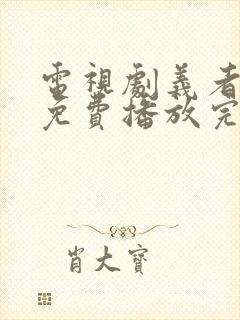 電視劇義者
免費播放完
肖大寶